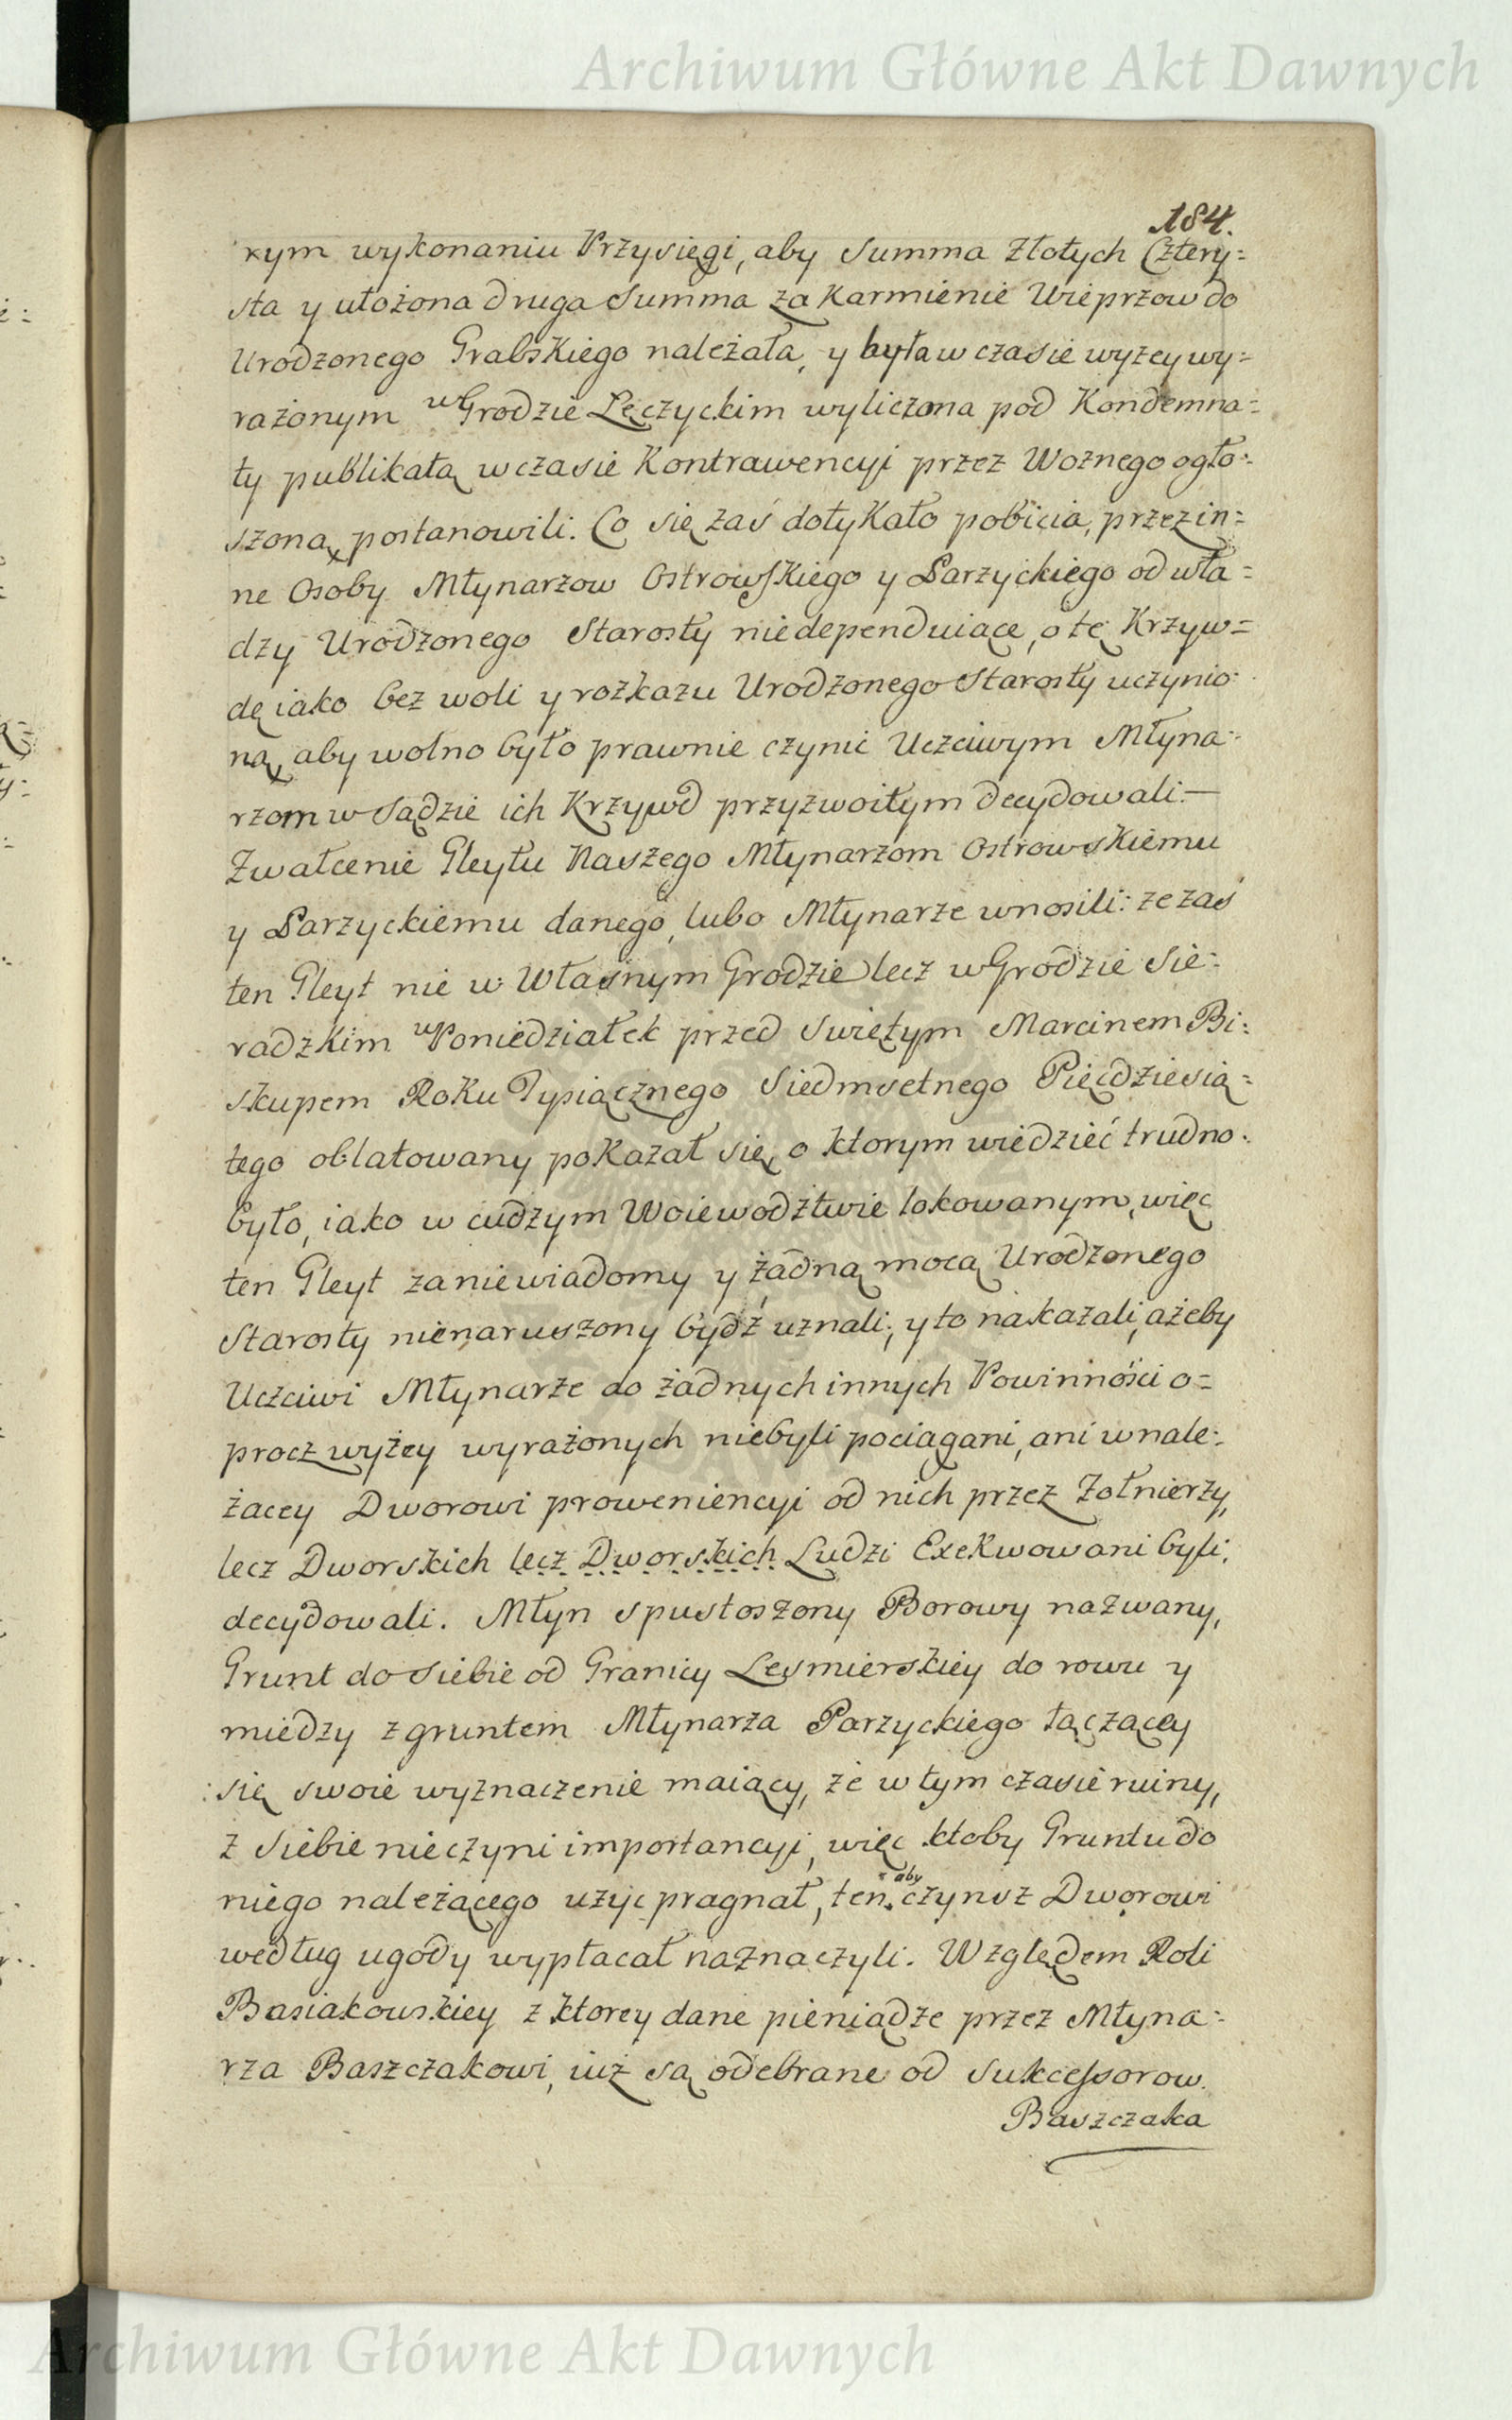 Archiwum Główne Akt Dawnych
184.
rym wykonaniu Przysięgi, aby Summa Złotych Cztery=
sta y ułożona druga Summa za Karmienie Wieprzow do
Urodzonego Grabskiego należała, y była w czasie wyżey wy=
rażonym w Grodzie Łęczyckim wyliczona pod Kondemna=
ty publikatą w czasie Kontrawencyi przez Woznego ogło=
szoną, postanowili. Co się zaś dotykało pobicia, przez in=
ne Osoby Młynarzow Ostrowskiego y Parzyckiego od wła=
dzy Urodzonego Starosty niedependuiące, o tę Krzyw=
dę iako bez woli y rozkazu Urodzonego Starosty uczynio=
ną, aby wolno było prawnie czynic Uczciwym Młyna=
rzom w Sądzie ich Krzywd przyzwoitym decydowali.—
Zwałcenie Gleytu Naszego Młynarzom Ostrowskiemu
y Parzyckiemu danego, lubo Młynarze wnosili: ze zaś
ten Gleyt nie w Własnym Grodzie lecz w Grodzie Sie=
radzkim w Poniedziałek przed Swiętym Marcinem Bi=
skupem Roku Tysiącznego Siedmsetnego Pięcdziesią=
tego oblatowany pokazał się, o ktorym wiedzieć trudno
było, iako w cudzym Woiewodztwie lokowanym, więc
ten Gleyt za niewiadomy y żadną mocą Urodzonego
Starosty nienaruszony bydź uznali; y to nakazali, ażeby
Uczciwi Młynarze do żadnych innych Powinności o=
procz wyżey wyrażonych niebyli pociągani, ani w nale=
żacey Dworowi proweniencyi od nich przez Zołnierzy,
lecz Dworskich lecz Dworskich Ludzi Exekwowani byli,
decydowali. Młyn spustoszony Borowy nazwany,
Grunt do siebie od Granicy Lesmierskiey do rowu y
miedzy z gruntem Młynarza Parzyckiego łączącey
się swoie wyznaczenie maiący, że w tym czasie ruiny,
z siebie nie czyni importancyi, więc ktoby Gruntu do
niego należącego użyc pragnał, ten aby czynsz Dworowi
według ugody wypłacał naznaczyli. Względem Roli
Basiakowskiey z ktorey dane pieniądze przez Młyna=
rza Baszczakowi, iuż są odebrane od Sukcessorow
Baszczaka
Archiwum Główne Akt Dawnych